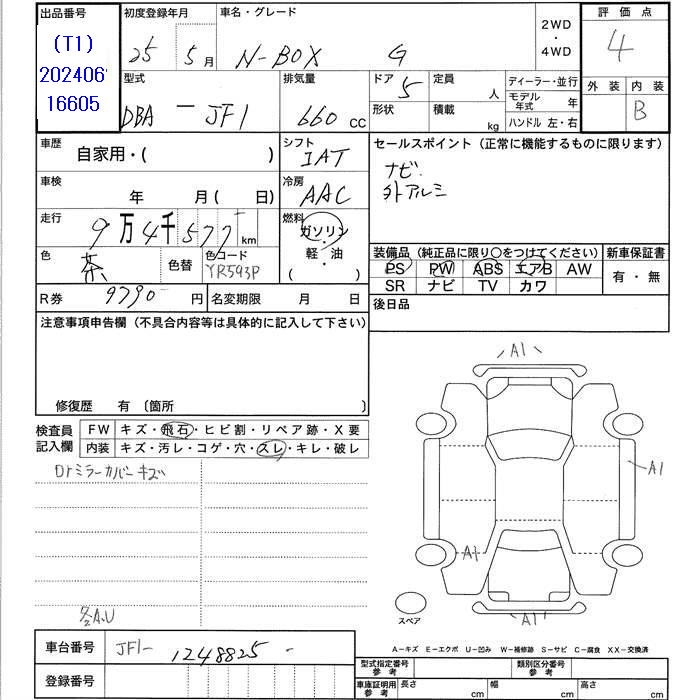 出品番号
(T1)
202406
16605
初度登録年月
25 5 月
車名・グレード
N-BOX G
2WD
・
4WD
評価点
4
外装 内装
B
型式
DBA － JF1
排気量
660 CC
ドア 5
形状
定員 人
積載 kg
ディーラー・並行
モデル年式 年
ハンドル 左・右
車歴
自家用・( )
シフト
IAT
セールスポイント（正常に機能するものに限ります）
ナビ.
外アルミ
車検
年 月( 日)
冷房
AAC
走行
9 万 4 千 577 km
燃料
ガソリン
・
軽・油
( )
色
茶
色替
色コード
YR593P
装備品（純正品に限り○をつけてください）
PS PW ABS エアB AW
SR ナビ TV カワ
新車保証書
有・無
R券 9790 円
名変期限 月 日
後日品
注意事項申告欄（不具合内容等は具体的に記入して下さい）
修復歴 有〔箇所 〕
検査員
記入欄
FW キズ・飛石・ヒビ割・リペア跡・X要
内装 キズ・汚レ・コゲ・穴・スレ・キレ・破レ
Drミラーカバーキズ
A1
A1
A1
A1
スペア
A.U
A－キズ E－エクボ U－凹み W－補修跡 S－サビ C－腐食 XX－交換済
車台番号 JF1- 1248825
登録番号
型式指定番号
参考
類別区分番号
参考
車庫証明用
参考
長さ cm
幅 cm
高さ cm